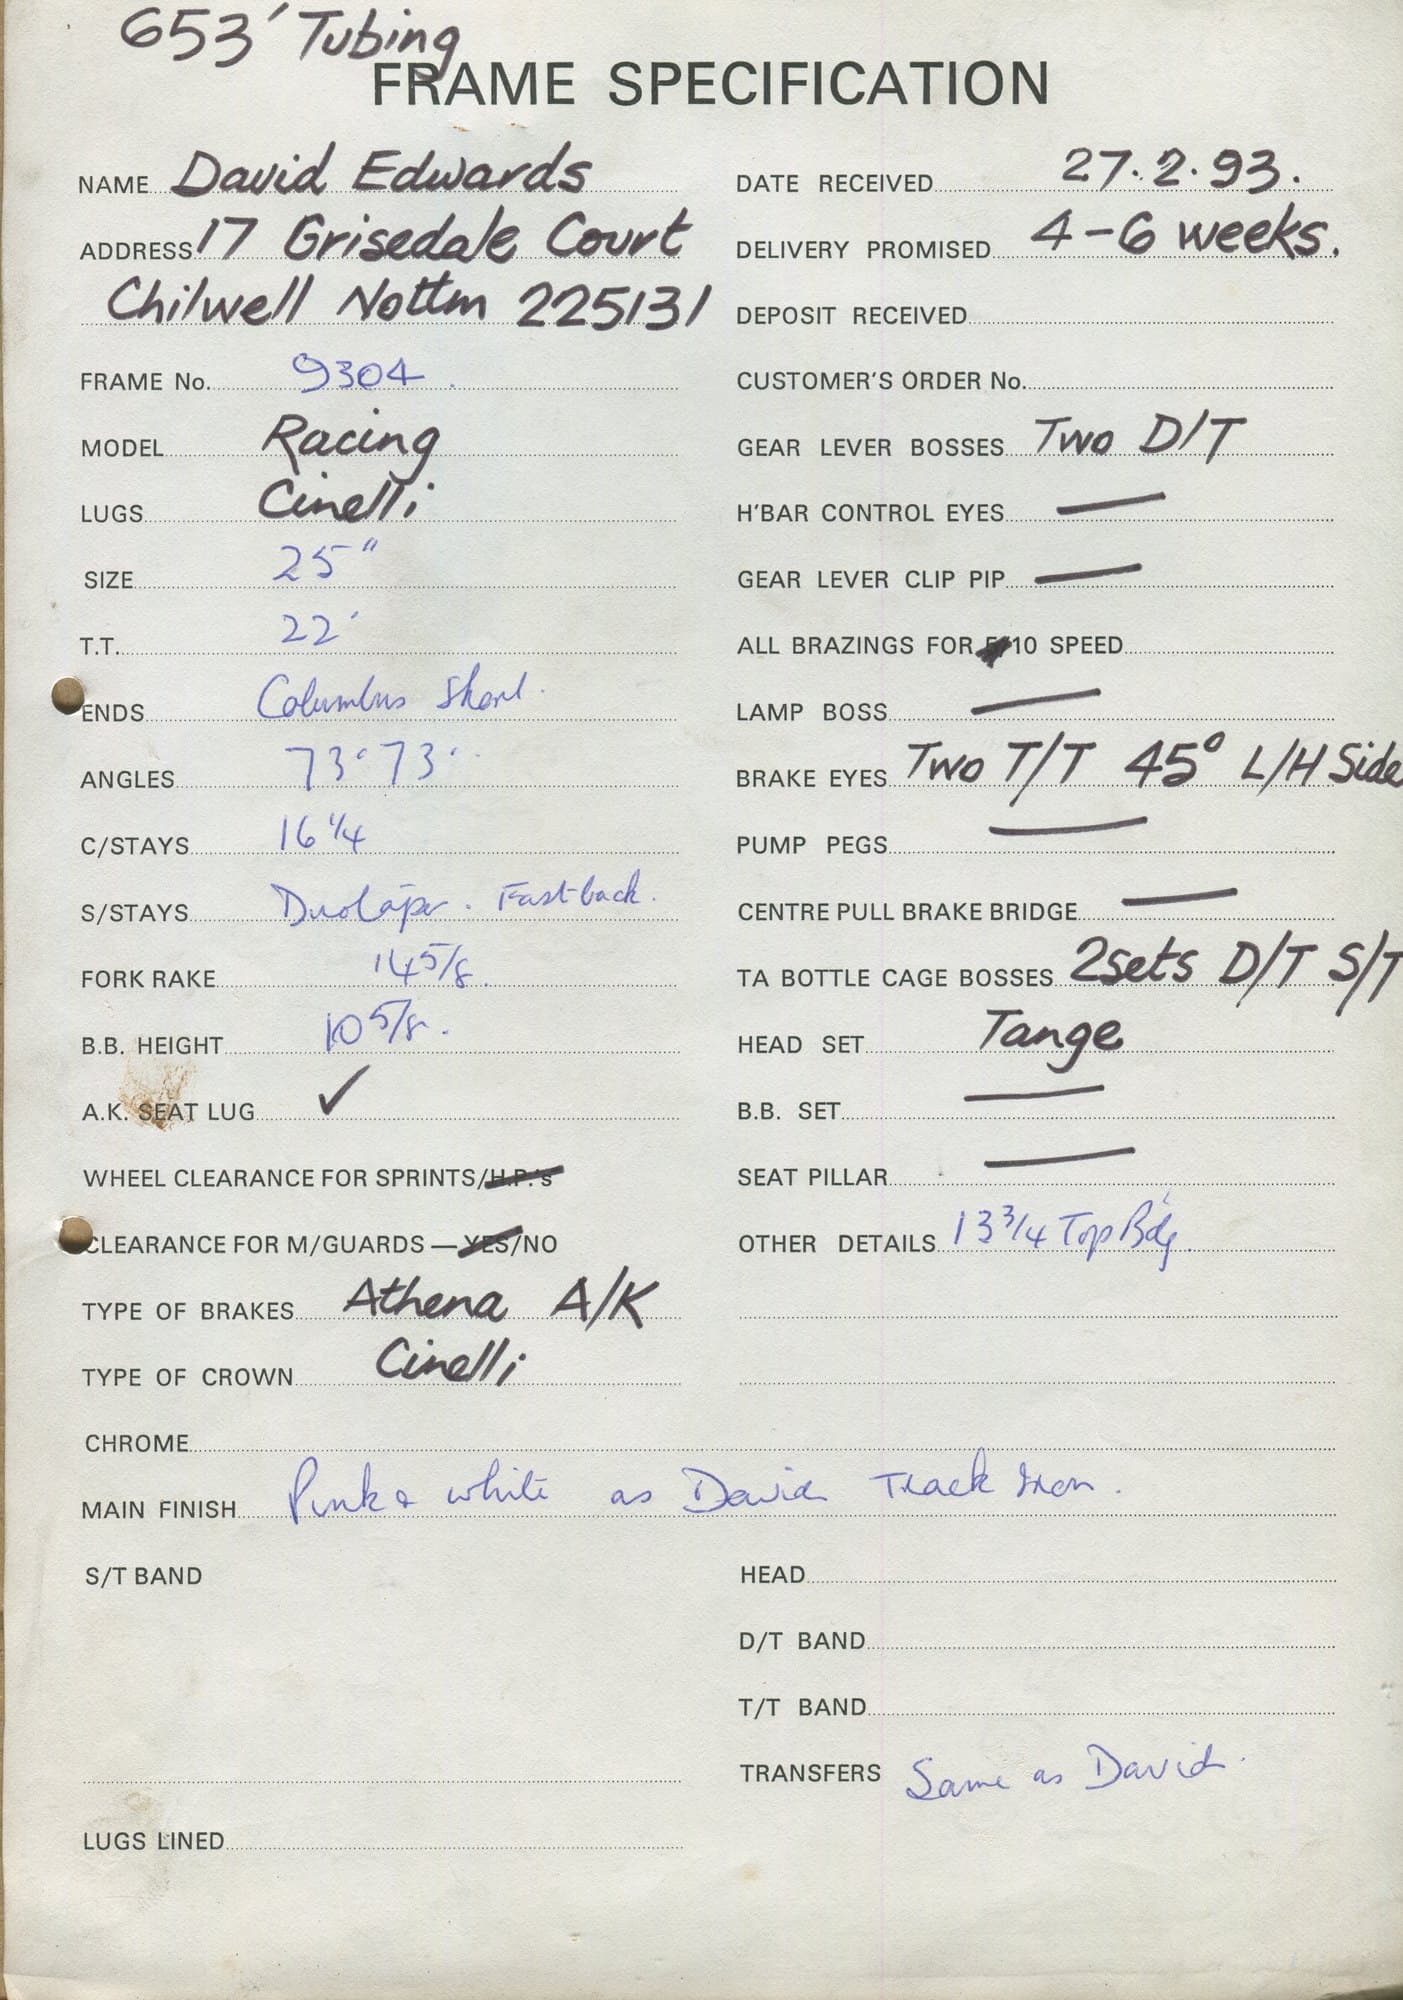 653' Tubing
FRAME SPECIFICATION
NAME David Edwards
ADDRESS 17 Grisedale Court
Chilwell Nottm 225131
FRAME No. 9304.
MODEL Racing
LUGS Cinelli
SIZE 25"
T.T. 22'
ENDS Columbus Short.
ANGLES 73° 73°
C/STAYS 16 1/4
S/STAYS Duotaper. Fastback.
FORK RAKE 14 5/8.
B.B. HEIGHT 10 5/8.
A.K. SEAT LUG ✓
WHEEL CLEARANCE FOR SPRINTS/H.P.'s
CLEARANCE FOR M/GUARDS — YES/NO
TYPE OF BRAKES Athena A/K
TYPE OF CROWN Cinelli
DATE RECEIVED 27.2.93.
DELIVERY PROMISED 4-6 weeks.
DEPOSIT RECEIVED
CUSTOMER'S ORDER No.
GEAR LEVER BOSSES Two D/T
H'BAR CONTROL EYES —
GEAR LEVER CLIP PIP —
ALL BRAZINGS FOR 5/10 SPEED
LAMP BOSS —
BRAKE EYES Two T/T 45° L/H Side
PUMP PEGS —
CENTRE PULL BRAKE BRIDGE —
TA BOTTLE CAGE BOSSES 2sets D/T S/T
HEAD SET Tange
B.B. SET —
SEAT PILLAR —
OTHER DETAILS 13 3/4 Top Bdg.
CHROME
MAIN FINISH Pink & white as David Track Iron.
S/T BAND
LUGS LINED
HEAD
D/T BAND
T/T BAND
TRANSFERS Same as David.